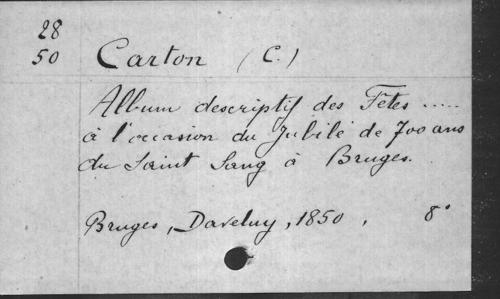 28
50 Carton (C.)
Album descriptif des Fêtes .....
à l'occasion du Jubilé de 700 ans
du Saint Sang à Bruges.
Bruges, Daveluy, 1850, 8°